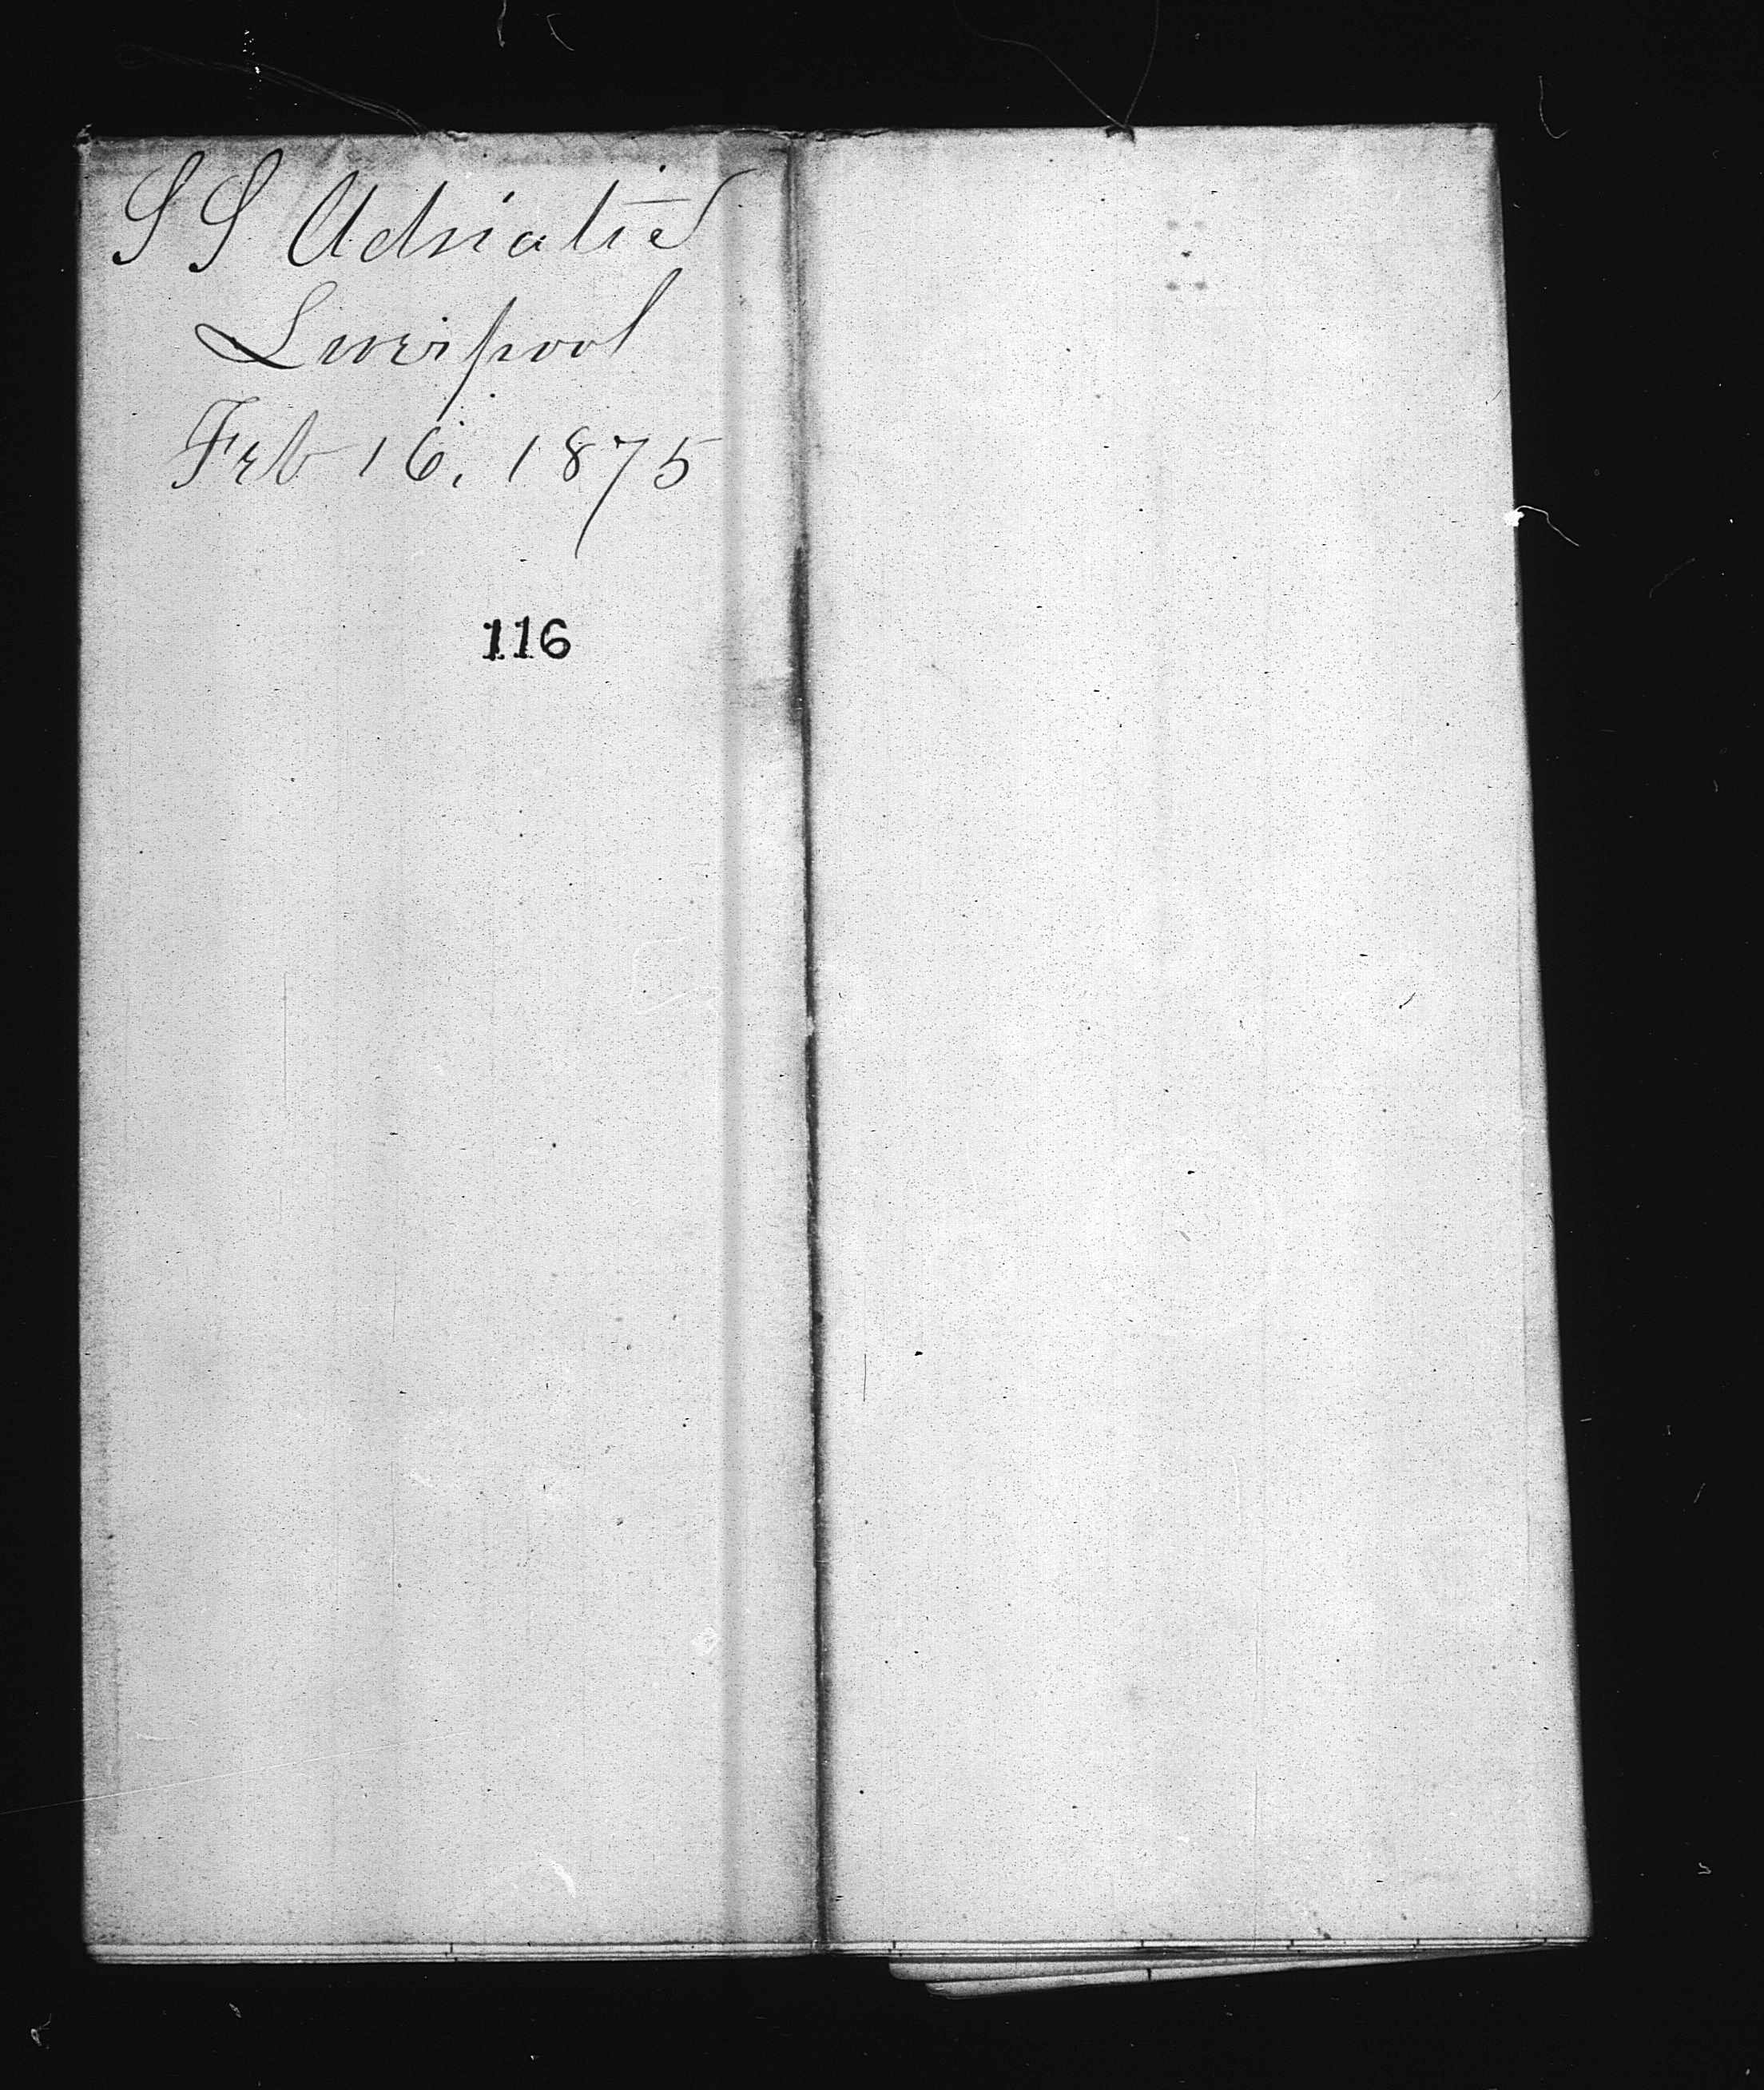 SS Adriatic
Liverpool
Feb 16, 1875
116